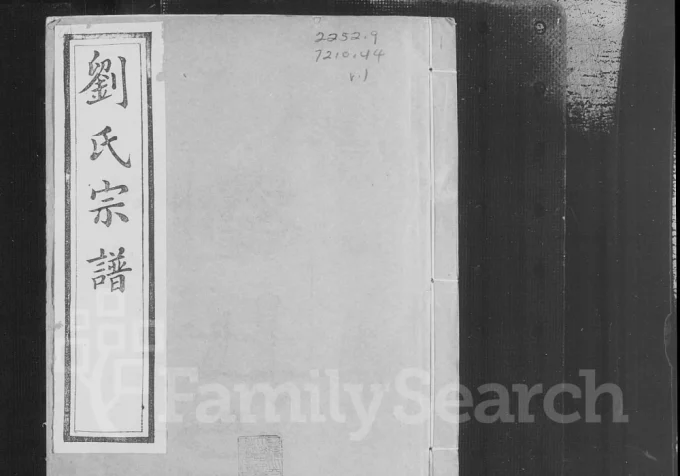 劉氏宗譜
2252.9
7210.44
v.1
FamilySearch